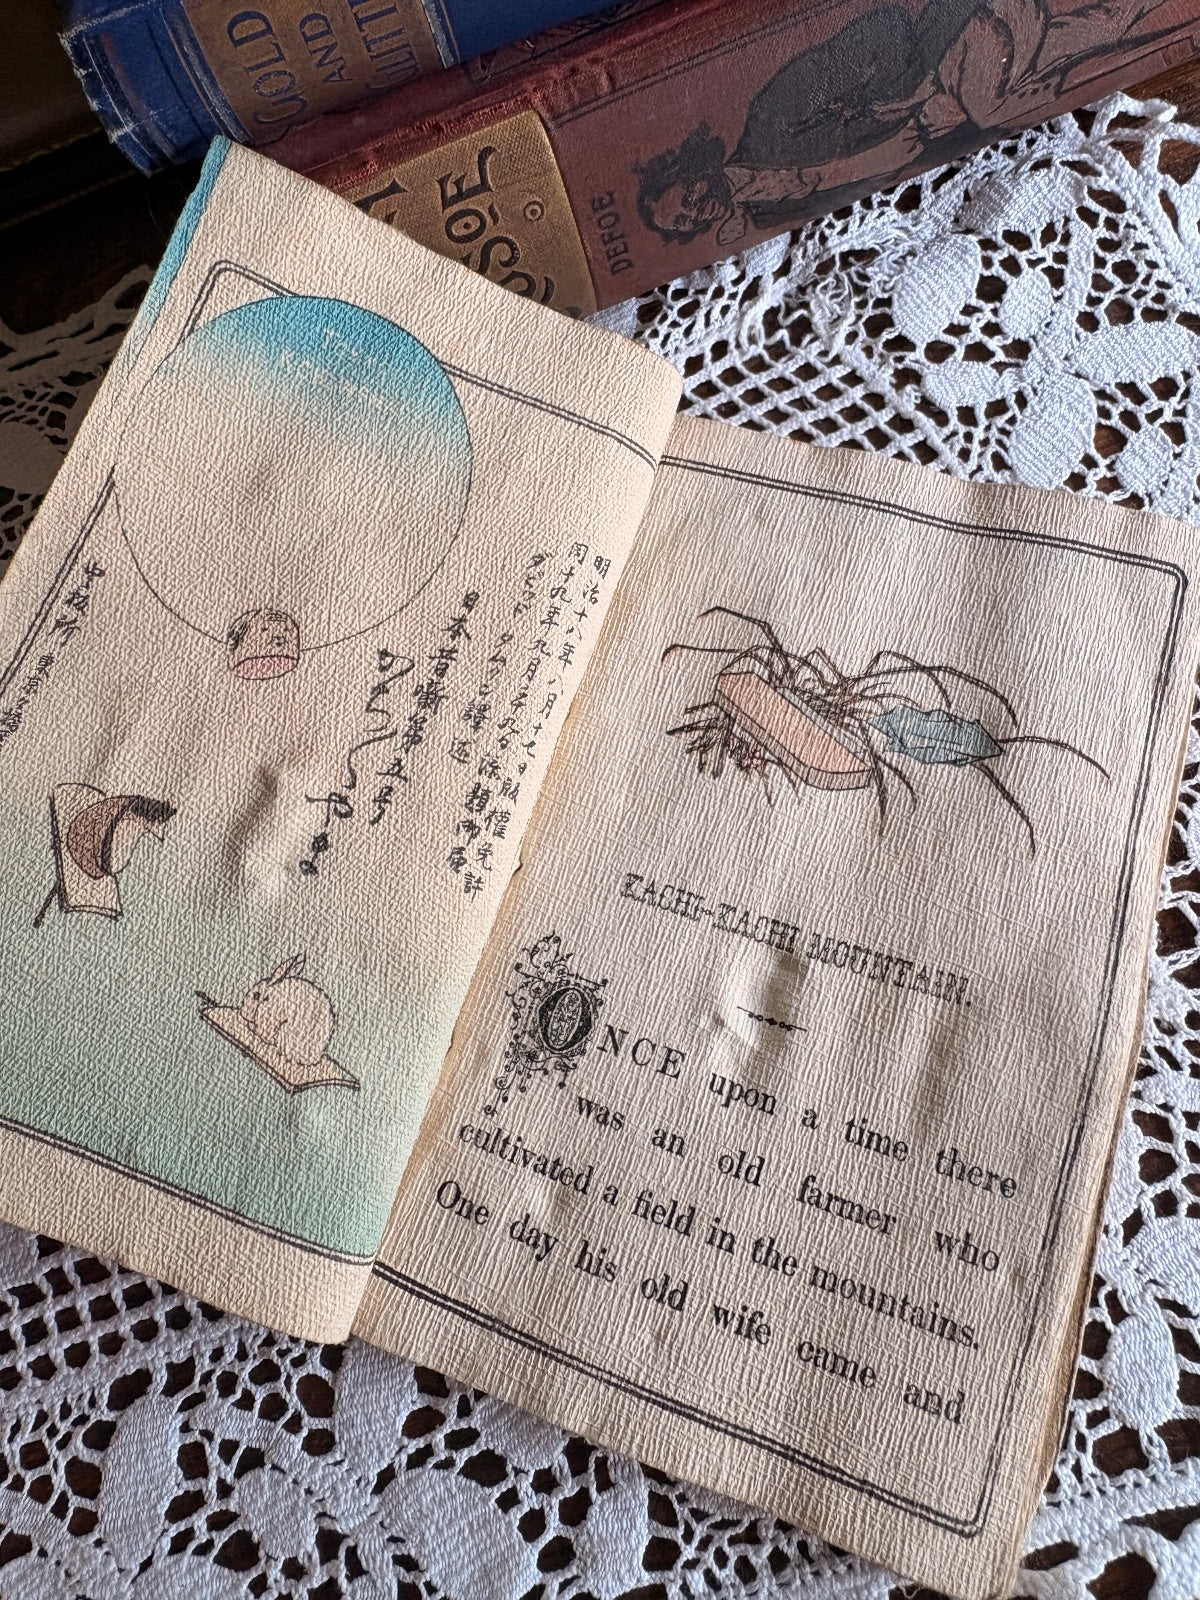 GOLD
AND
DEFOE
明治十八年八月十七日版權免許
同十九年九月三十九日添題御届
ダビッド タムソン譯述
日本昔噺第五号
かちかちやま
KACHI-KACHI MOUNTAIN.
ONCE upon a time there
was an old farmer who
cultivated a field in the mountains.
One day his old wife came and